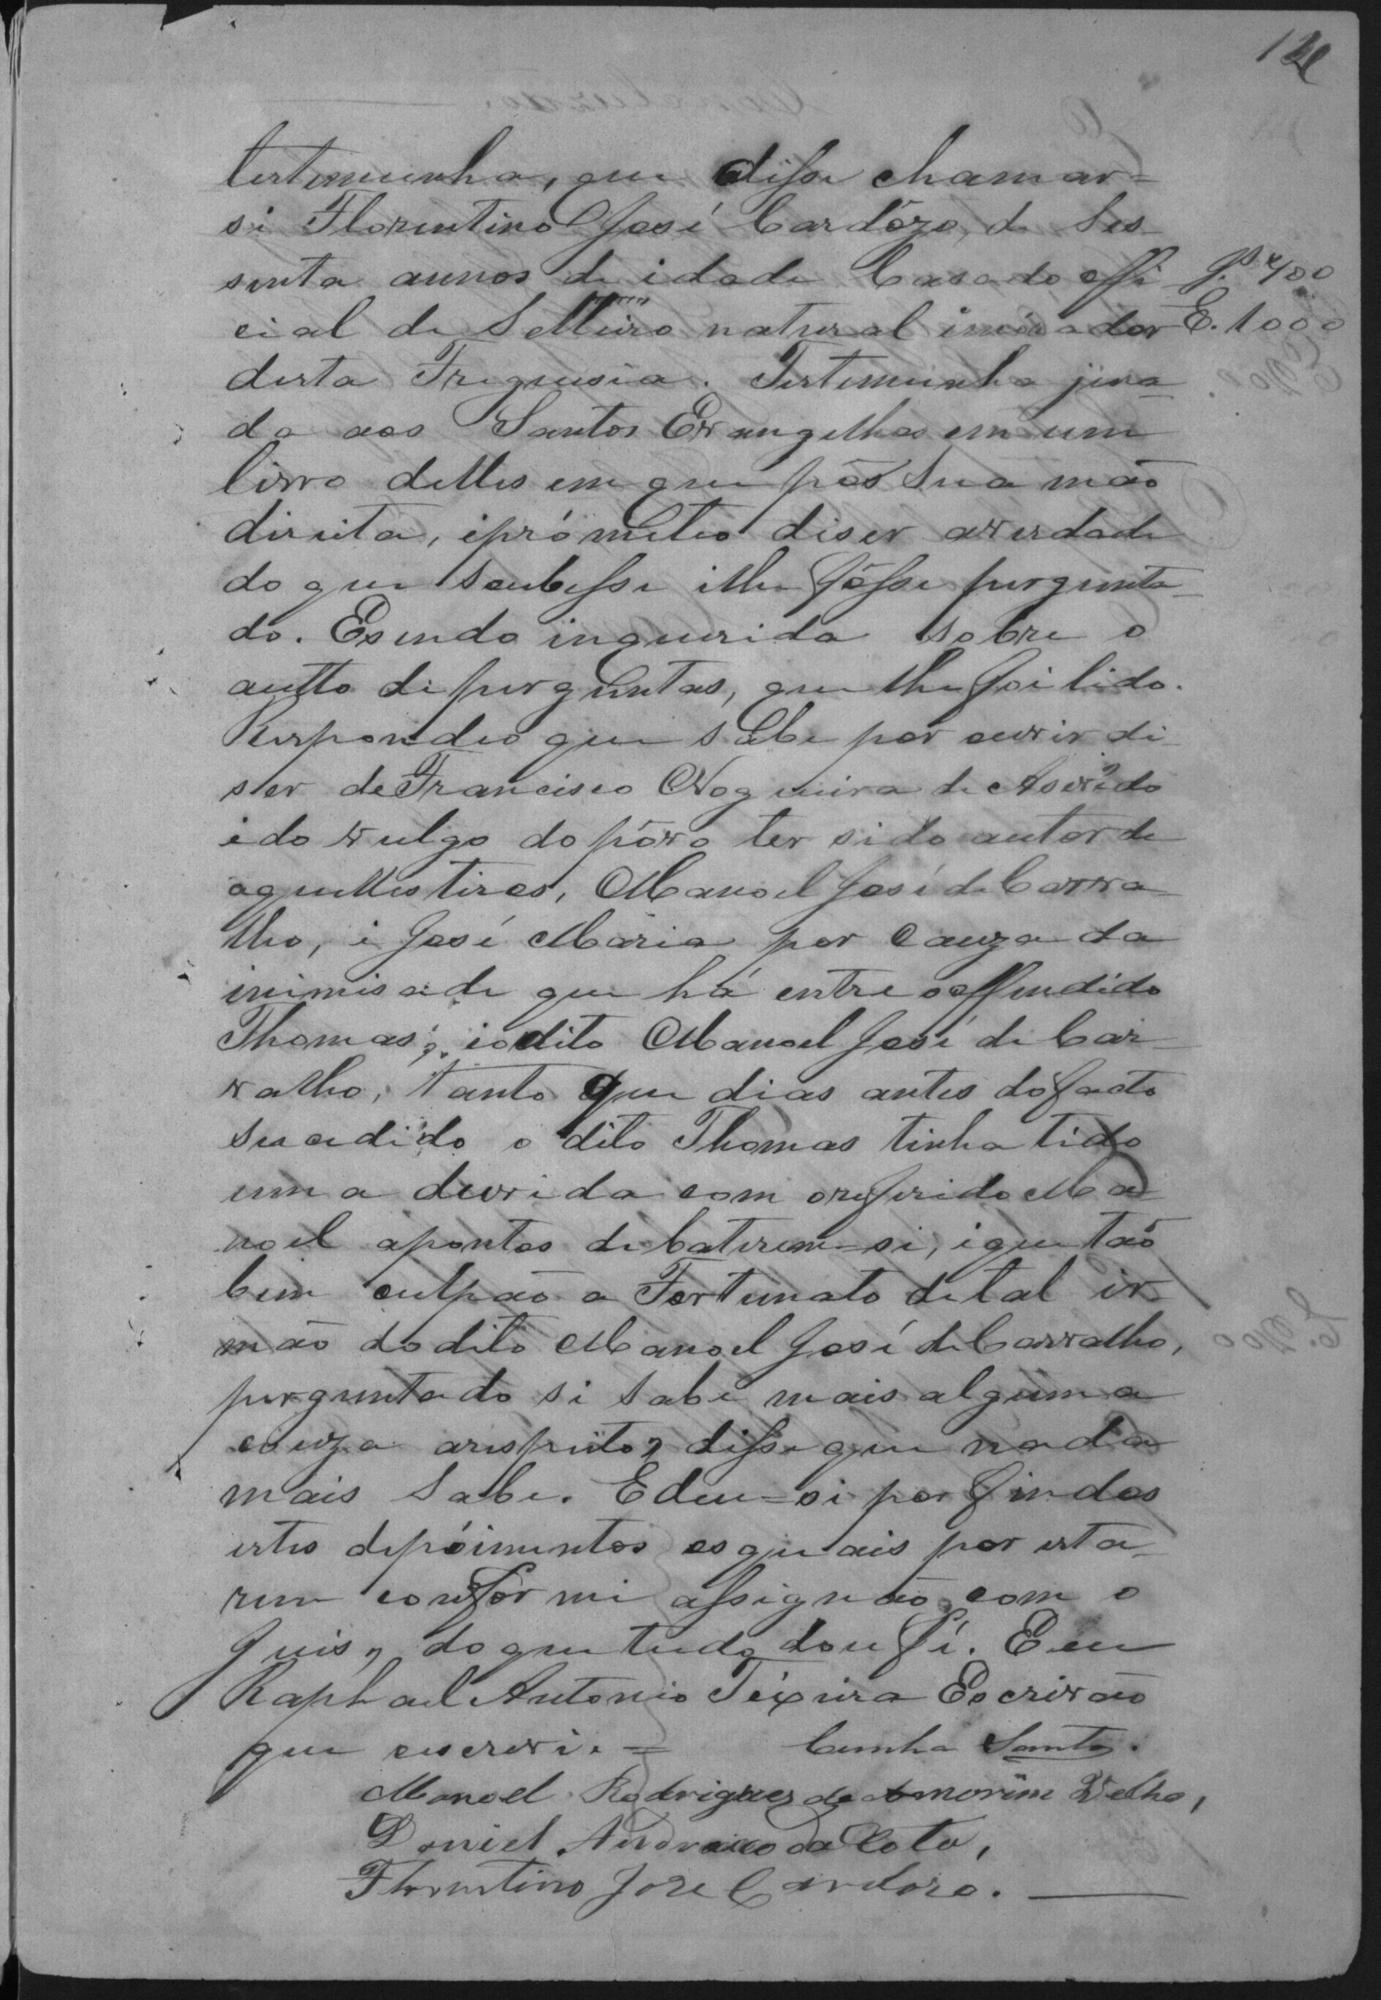 testemunha, que disse chamar=
si Florentino José Cardôzo, de Ses-
senta annos de idade Casado offi J.s 400
cial de Selleiro natural i morador E. 1000
desta Freguesia. Testemunha jura-
da aos Santos Evangelhos em um
livro delles em que pôs Sua mão
direita, i prómeteo diser averdade
do que Soubesse i lhe fôsse pergunta-
do. E sendo inquerida sobre o
autto de perguntas, que lhe foi lido.
Respondeo que sabe por ouvir di-
ser de Francisco Nogueira de Asevêdo
i do vulgo do pôvo ter sido autor de
aquelles tiros, Manoel José de Carva-
lho, i José Maria por Cauza da
inimisade que há entre o offendido
Thomas; i o dito Manoel José de Car-
valho, tanto que dias antes do facto
sucedido o dito Thomas tinha tido
uma duvida com o referido Ma-
noel apontos de baterem=si, i que tão
bem culpão a Fortunato de tal ir-
mão do dito Manoel José de Carvalho,
perguntado si sabe mais alguma
couza arespeito, disse que nada
mais Sabe. E deu=si por findos
estes depóimentos os quais por esta-
rem confórmi assignão com o
Juis, do que tudo dou fé. E eu
Raphael Antonio Teixeira Escrivão
que escrevi. = Cunha Santos.
Manoel Rodrigues de Amorim Velho,
Daniel da Cota,
Florentino Jose Cardozo.